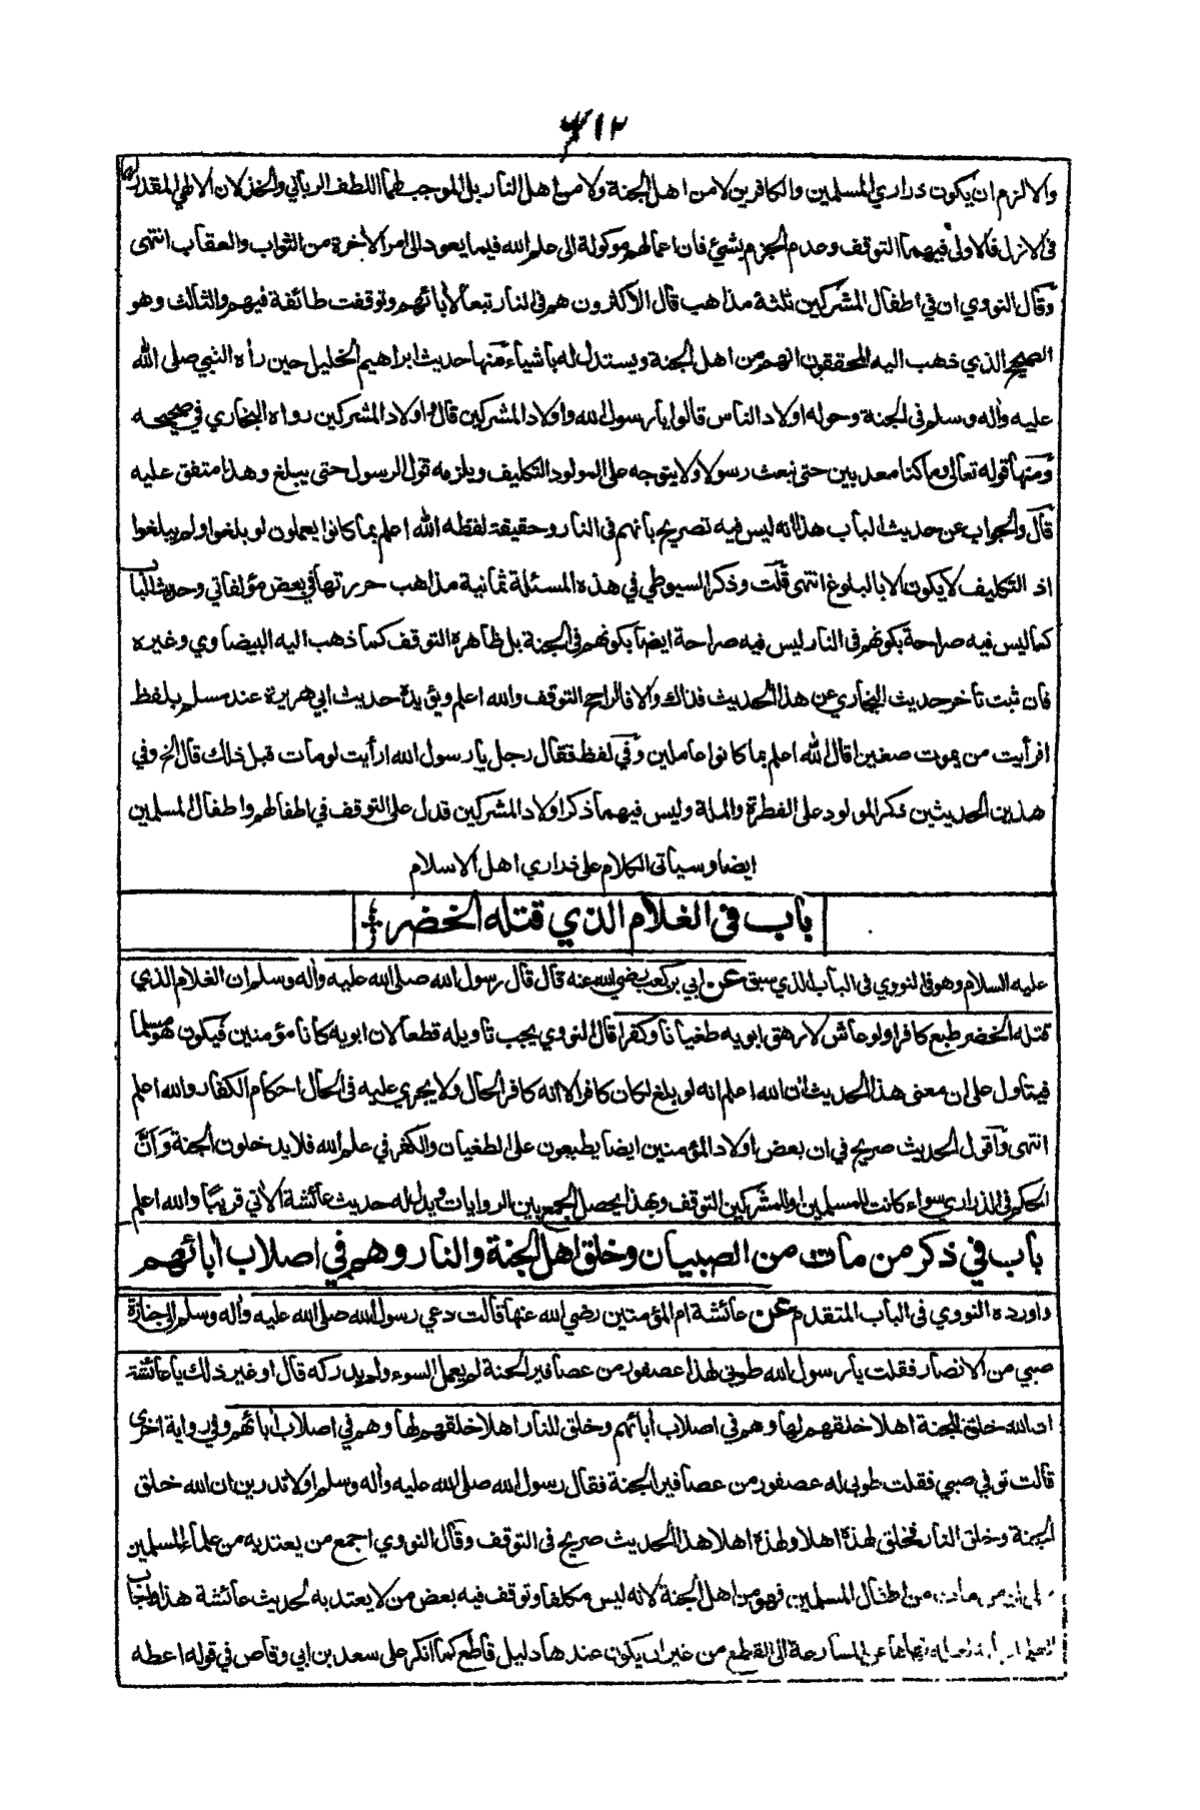 ٦١٢
والا لزم ان يكون ذراري المسلمين والكافرين لا من اهل الجنة ولا من اهل النار بل الموجب لهما اللطف الرباني والخذلان الالهي المقدر لهما
فى الازل فالاولى فيهما التوقف وعدم الجزم بشيئ فان اعمالهم موكولة الى علم الله فيما يعود الى امر الأخرة من الثواب والعقاب انتهى
وقال النووي ان في اطفال المشركين ثلثة مذاهب قال الاكثرون هم فى النار تبعا لأبائهم وتوقفت طائفة فيهم والثالث وهو
الصحيح الذي ذهب اليه المحققون انهم من اهل الجنة ويستدل له باشياء منها حديث ابراهيم الخليل حين رأه النبي صلى الله
عليه وأله وسلم فى الجنة وحوله اولاد الناس قالوا يا رسول الله واولاد المشركين قال واولاد المشركين رواه البخاري في صحيحه
ومنها قوله تعالى وما كنا معذبين حتى نبعث رسولا ولا يتوجه على المولود التكليف ويلزمه قول الرسول حتى يبلغ وهذا متفق عليه
قال والجواب عن حديث الباب هذا انه ليس فيه تصريح بانهم فى النار وحقيقة لفظه الله اعلم بما كانوا يعملون لو بلغوا ولم يبلغوا
اذ التكليف لا يكون الا بالبلوغ انتهى قلت وذكر السيوطي في هذه المسئلة ثمانية مذاهب حررتها في بعض مؤلفاتي وحديث الباب
كما ليس فيه صراحة بكونهم فى النار ليس فيه صراحة ايضا بكونهم فى الجنة بل ظاهره التوقف كما ذهب اليه البيضاوي وغيره
فان ثبت تأخر حديث البخاري عن هذا الحديث فذاك والا فالراجح التوقف والله اعلم ويؤيده حديث ابي هريرة عند مسلم بلفظ
افرأيت من يموت صغيرا قال الله اعلم بما كانوا عاملين وفي لفظ فقال رجل يا رسول الله ارأيت لو مات قبل ذلك قال الخ وفي
هذين الحديثين ذكر المولود على الفطرة والملة وليس فيهما ذكر اولاد المشركين فدل على التوقف في اطفالهم واطفال المسلمين
ايضا وسيأتى الكلام على ذراري اهل الاسلام
باب فى الغلام الذي قتله الخضر
عليه السلام وهو فى النووي فى الباب الذي سبق عن ابي بن كعب رضي الله عنه قال قال رسول الله صلى الله عليه وأله وسلم ان الغلام الذي
قتله الخضر طبع كافرا ولو عاش لارهق ابويه طغيانا وكفرا قال النووي يجب تأويله قطعا لان ابويه كانا مؤمنين فيكون هو مسلما
فيتاول على ان معنى هذا الحديث ان الله اعلم انه لو بلغ لكان كافرا لا انه كافر الحال ولا يجري عليه فى الحال احكام الكفار والله اعلم
انتهى واقول الحديث صريح في ان بعض اولاد المؤمنين ايضا يطبعون على الطغيان والكفر في علم الله فلا يدخلون الجنة وأنَّ
الحكم فى الذراري سواء كانت للمسلمين او للمشركين التوقف وبهذا يحصل الجمع بين الروايات ويدل له حديث عائشة الأتي قريبًا والله اعلم
باب في ذكر من مات من الصبيان وخلق اهل الجنة والنار وهم في اصلاب أبائهم
واورده النووي فى الباب المتقدم عن عائشة ام المؤمنين رضي الله عنها قالت دعي رسول الله صلى الله عليه وأله وسلم الى جنازة
صبي من الانصار فقلت يا رسول الله طوبى لهذا عصفور من عصافير الجنة لم يعمل السوء ولم يدركه قال او غير ذلك يا عائشة
ان الله خلق للجنة اهلا خلقهم لها وهم في اصلاب أبائهم وخلق للنار اهلا خلقهم لها وهم في اصلاب أبائهم وفي رواية اخرى
قالت توفي صبي فقلت طوبى له عصفور من عصافير الجنة فقال رسول الله صلى الله عليه وأله وسلم او لا تدرين ان الله خلق
الجنة وخلق النار فخلق لهذه اهلا ولهذه اهلا هذا الحديث صريح فى التوقف وقال النووي اجمع من يعتد به من علماء المسلمين
على ان من مات من اطفال المسلمين فهو من اهل الجنة لانه ليس مكلفا وتوقف فيه بعض من لا يعتد به لحديث عائشة هذا واجاب
العلماء بانه لعله نهاها عن المسارعة الى القطع من غير ان يكون عندها دليل قاطع كما انكر على سعد بن ابي وقاص في قوله اعطه